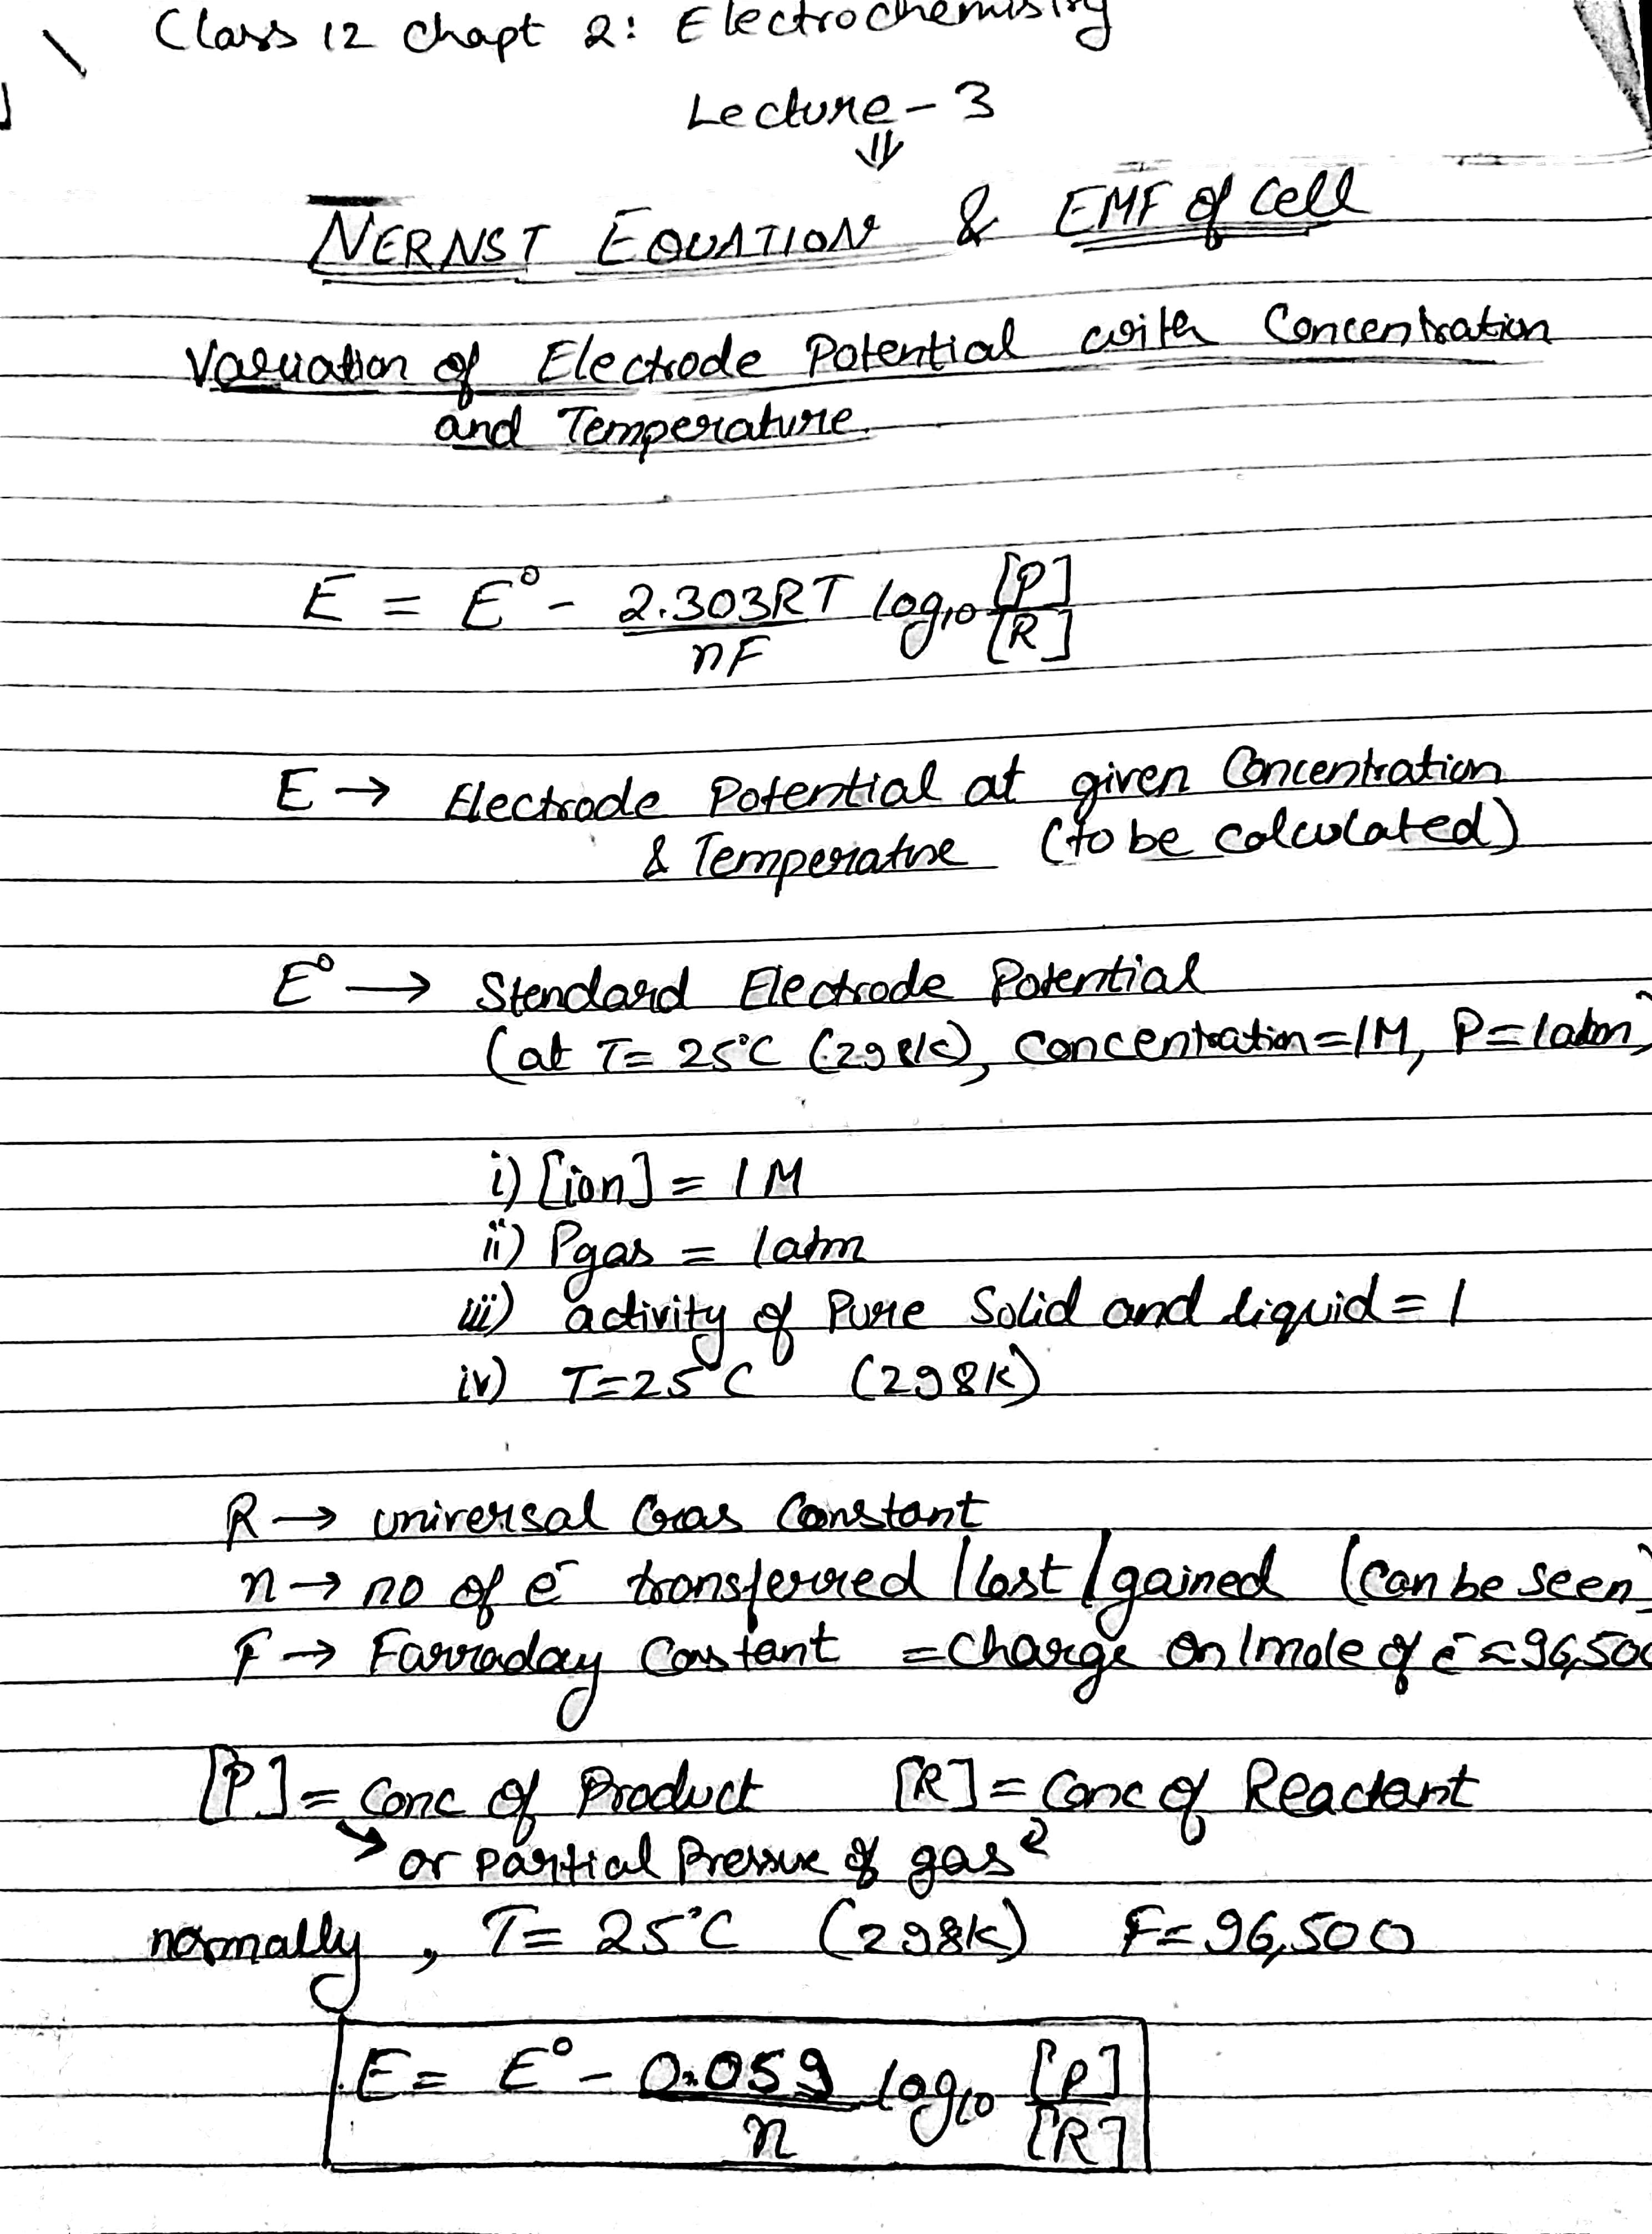 Class 12 Chapt 2: Electrochemistry
Lecture - 3
⇓
NERNST EQUATION & EMF of Cell
Variation of Electrode Potential with Concentration
and Temperature.
E = E° - 2.303RT/nF log₁₀ [P]/[R]
E → Electrode Potential at given Concentration
& Temperature (to be calculated)
E° → Standard Electrode Potential
(at T= 25°C (298K), Concentration=1M, P=1atm)
i) [ion] = 1M
ii) Pgas = 1atm
iii) activity of Pure Solid and liquid = 1
iv) T=25°C (298K)
R → universal Gas Constant
n → no of e⁻ transferred / lost / gained (Can be seen)
F → Farraday Constant = Charge on 1mole of e⁻ = 96,500
[P] = Conc of Product [R] = Conc of Reactant
→ or partial Pressure of gas
normally, T= 25°C (298K) F= 96,500
E = E° - 0.059/n log₁₀ [P]/[R]